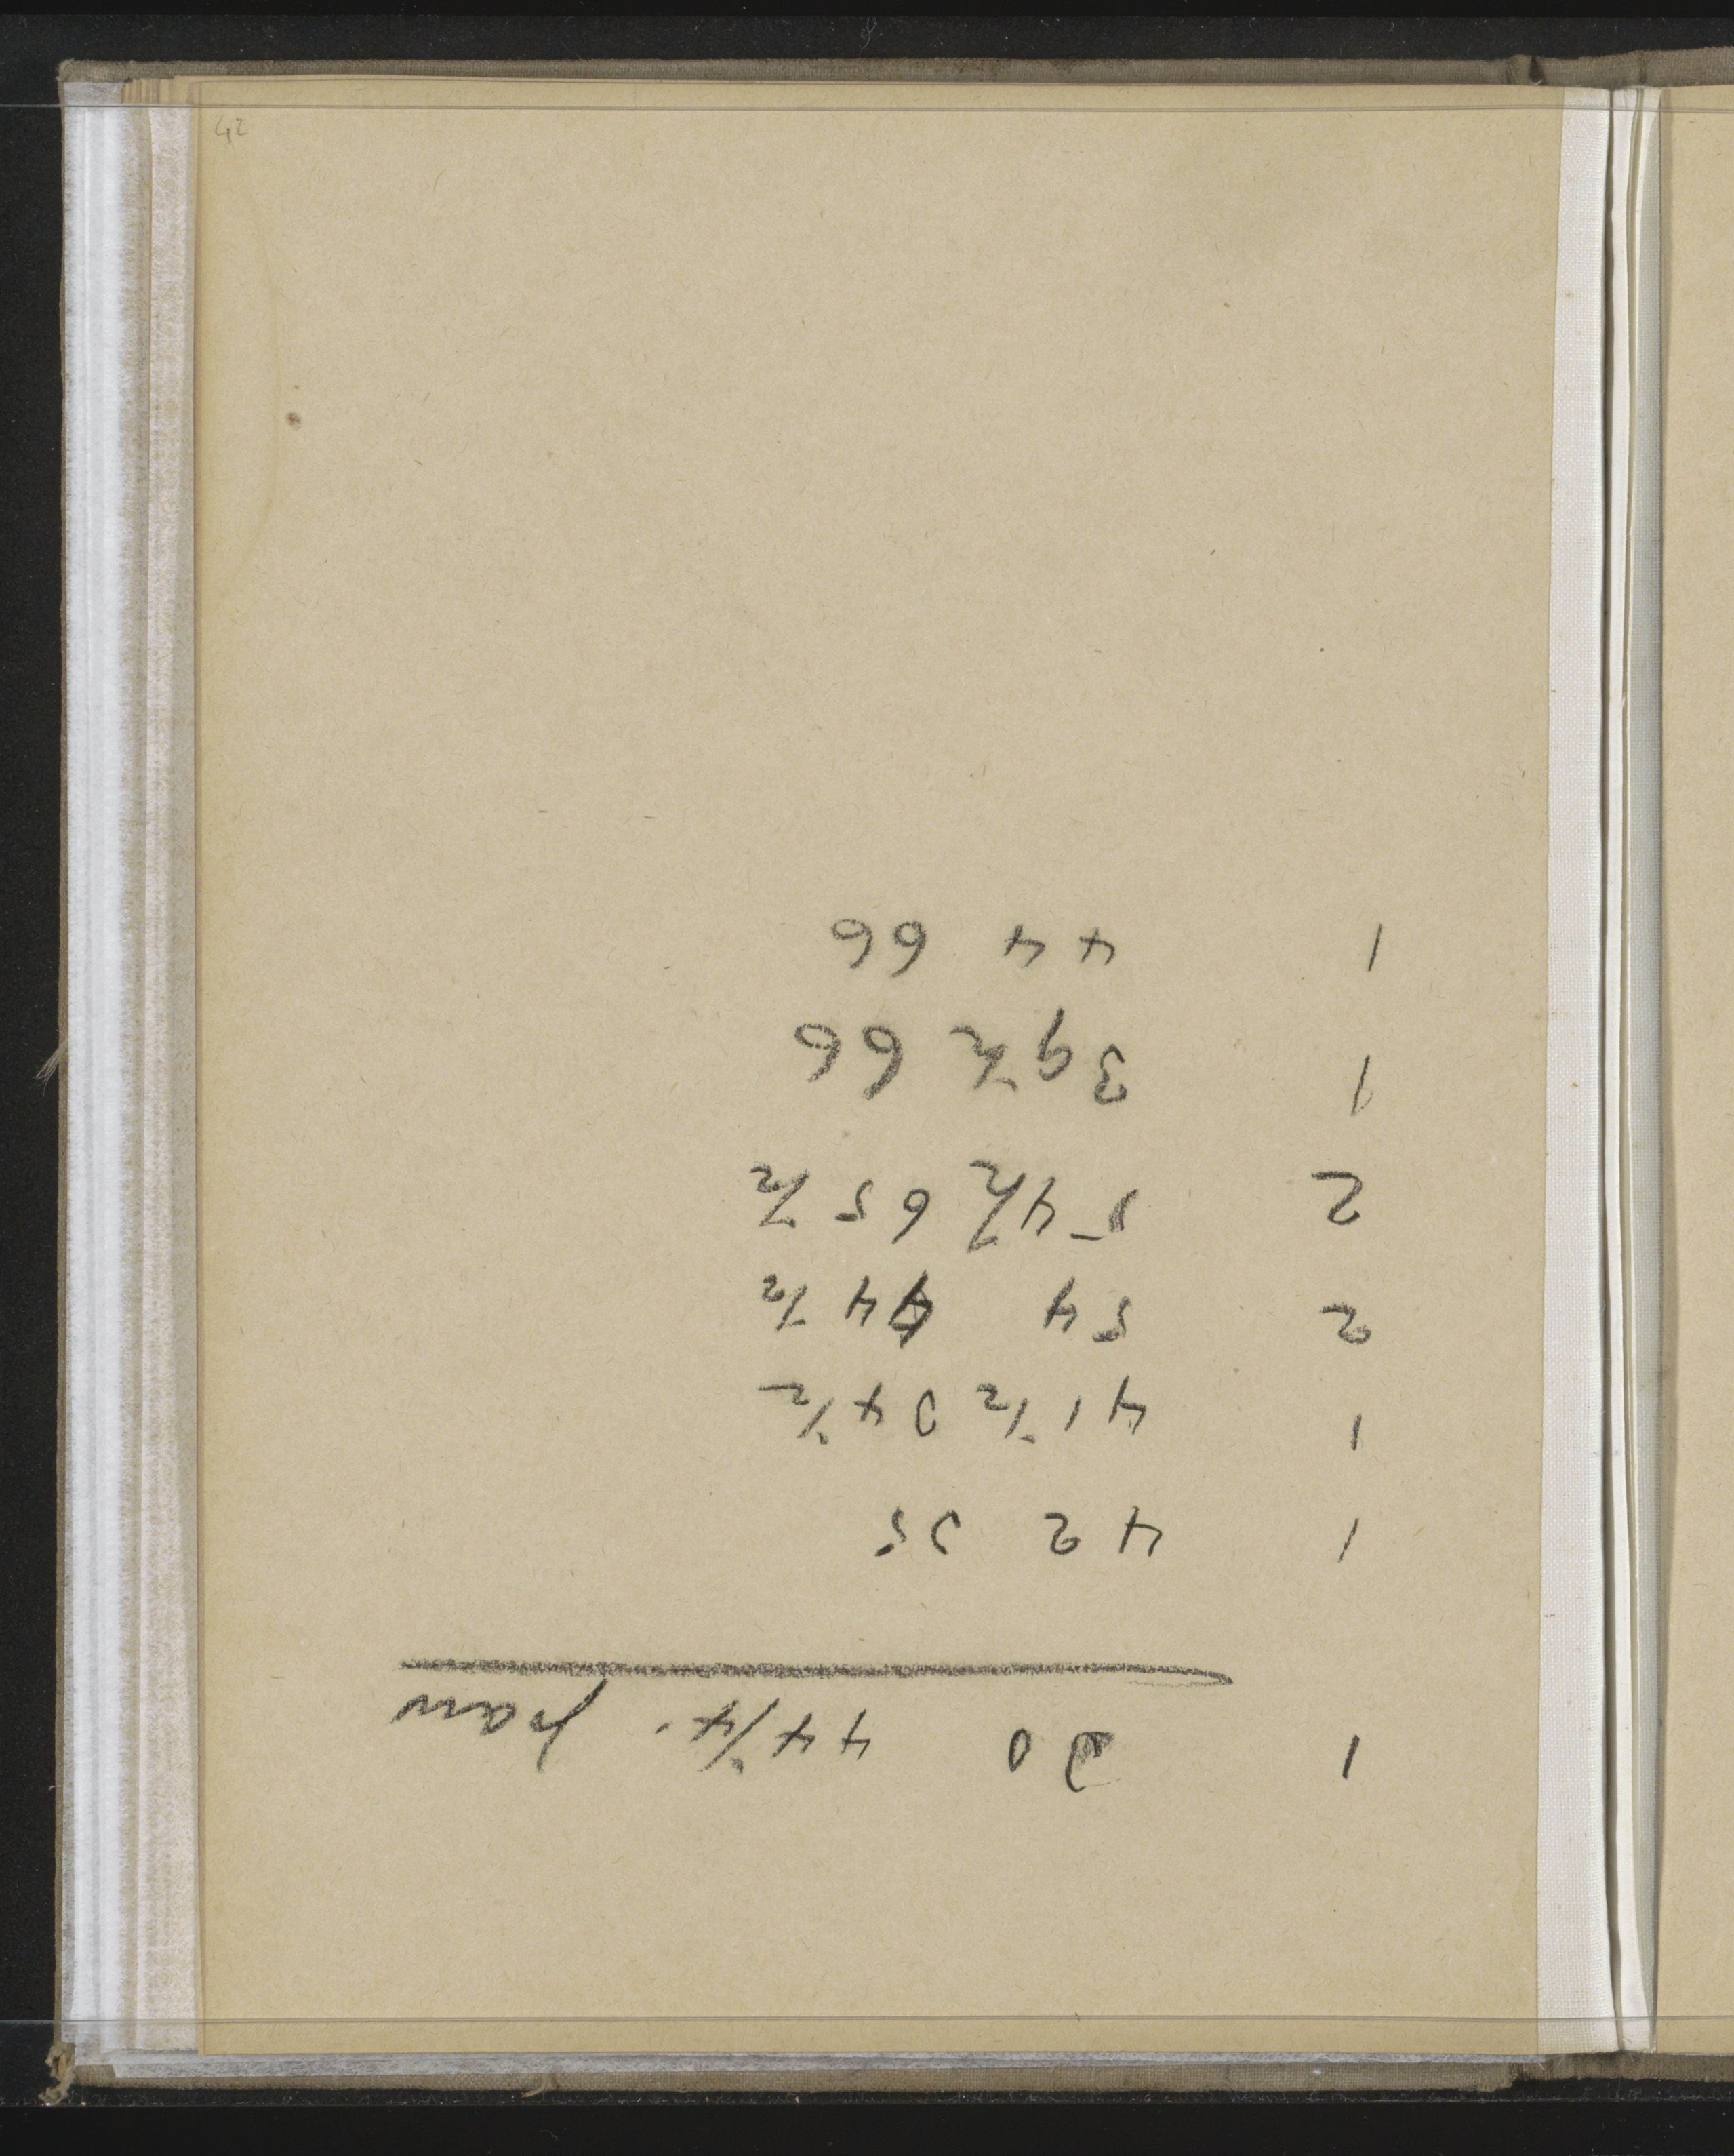 1 30 44 1/4.
1 42 35
1 41 1/2 34 1/2
2 54 44 1/2
2 54 1/2 65 1/2
1 39 1/2 66
1 44 66
42